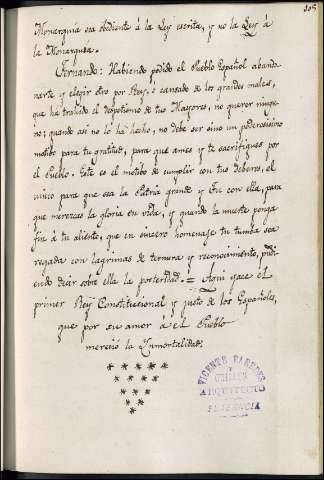 305
Monarquia sea obediente á la Ley escrita, y no la Ley á
la Monarquia.
Fernando: Habiendo podido el Pueblo Español abando
narte y elegir otro por Rey, o cansado de los grandes males,
que ha trahido el despotismo de tus Mayores, no querer ningu
no; quando asi no lo ha hecho, no debe ser sino un poderosisimo
motibo para tu gratitud, para que ames y te sacrifiques por
el Pueblo. Este es el motibo de cumplir con tus deberes, el
unico para que sea la Patria grande y tu con ella, para
que merezcas la gloria en vida, y quando la muerte ponga
fin á tu aliento, que en sincero homenage tu tumba sea
regada con lagrimas de ternura y reconocimiento, pudi-
endo decir sobre ella la posteridad = Aqui yace el
primer Rey Constitucional y justo de los Españoles,
que por su amor á el Pueblo
mereció la Inmortalidad.
VICENTE PAREDES
Y
GUILLEN
ARQUITECTO
PLASENCIA